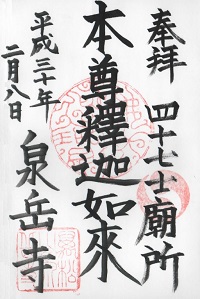 奉拝
四十七士廟所
本尊釋迦如來
平成三十年
二月八日
泉岳寺